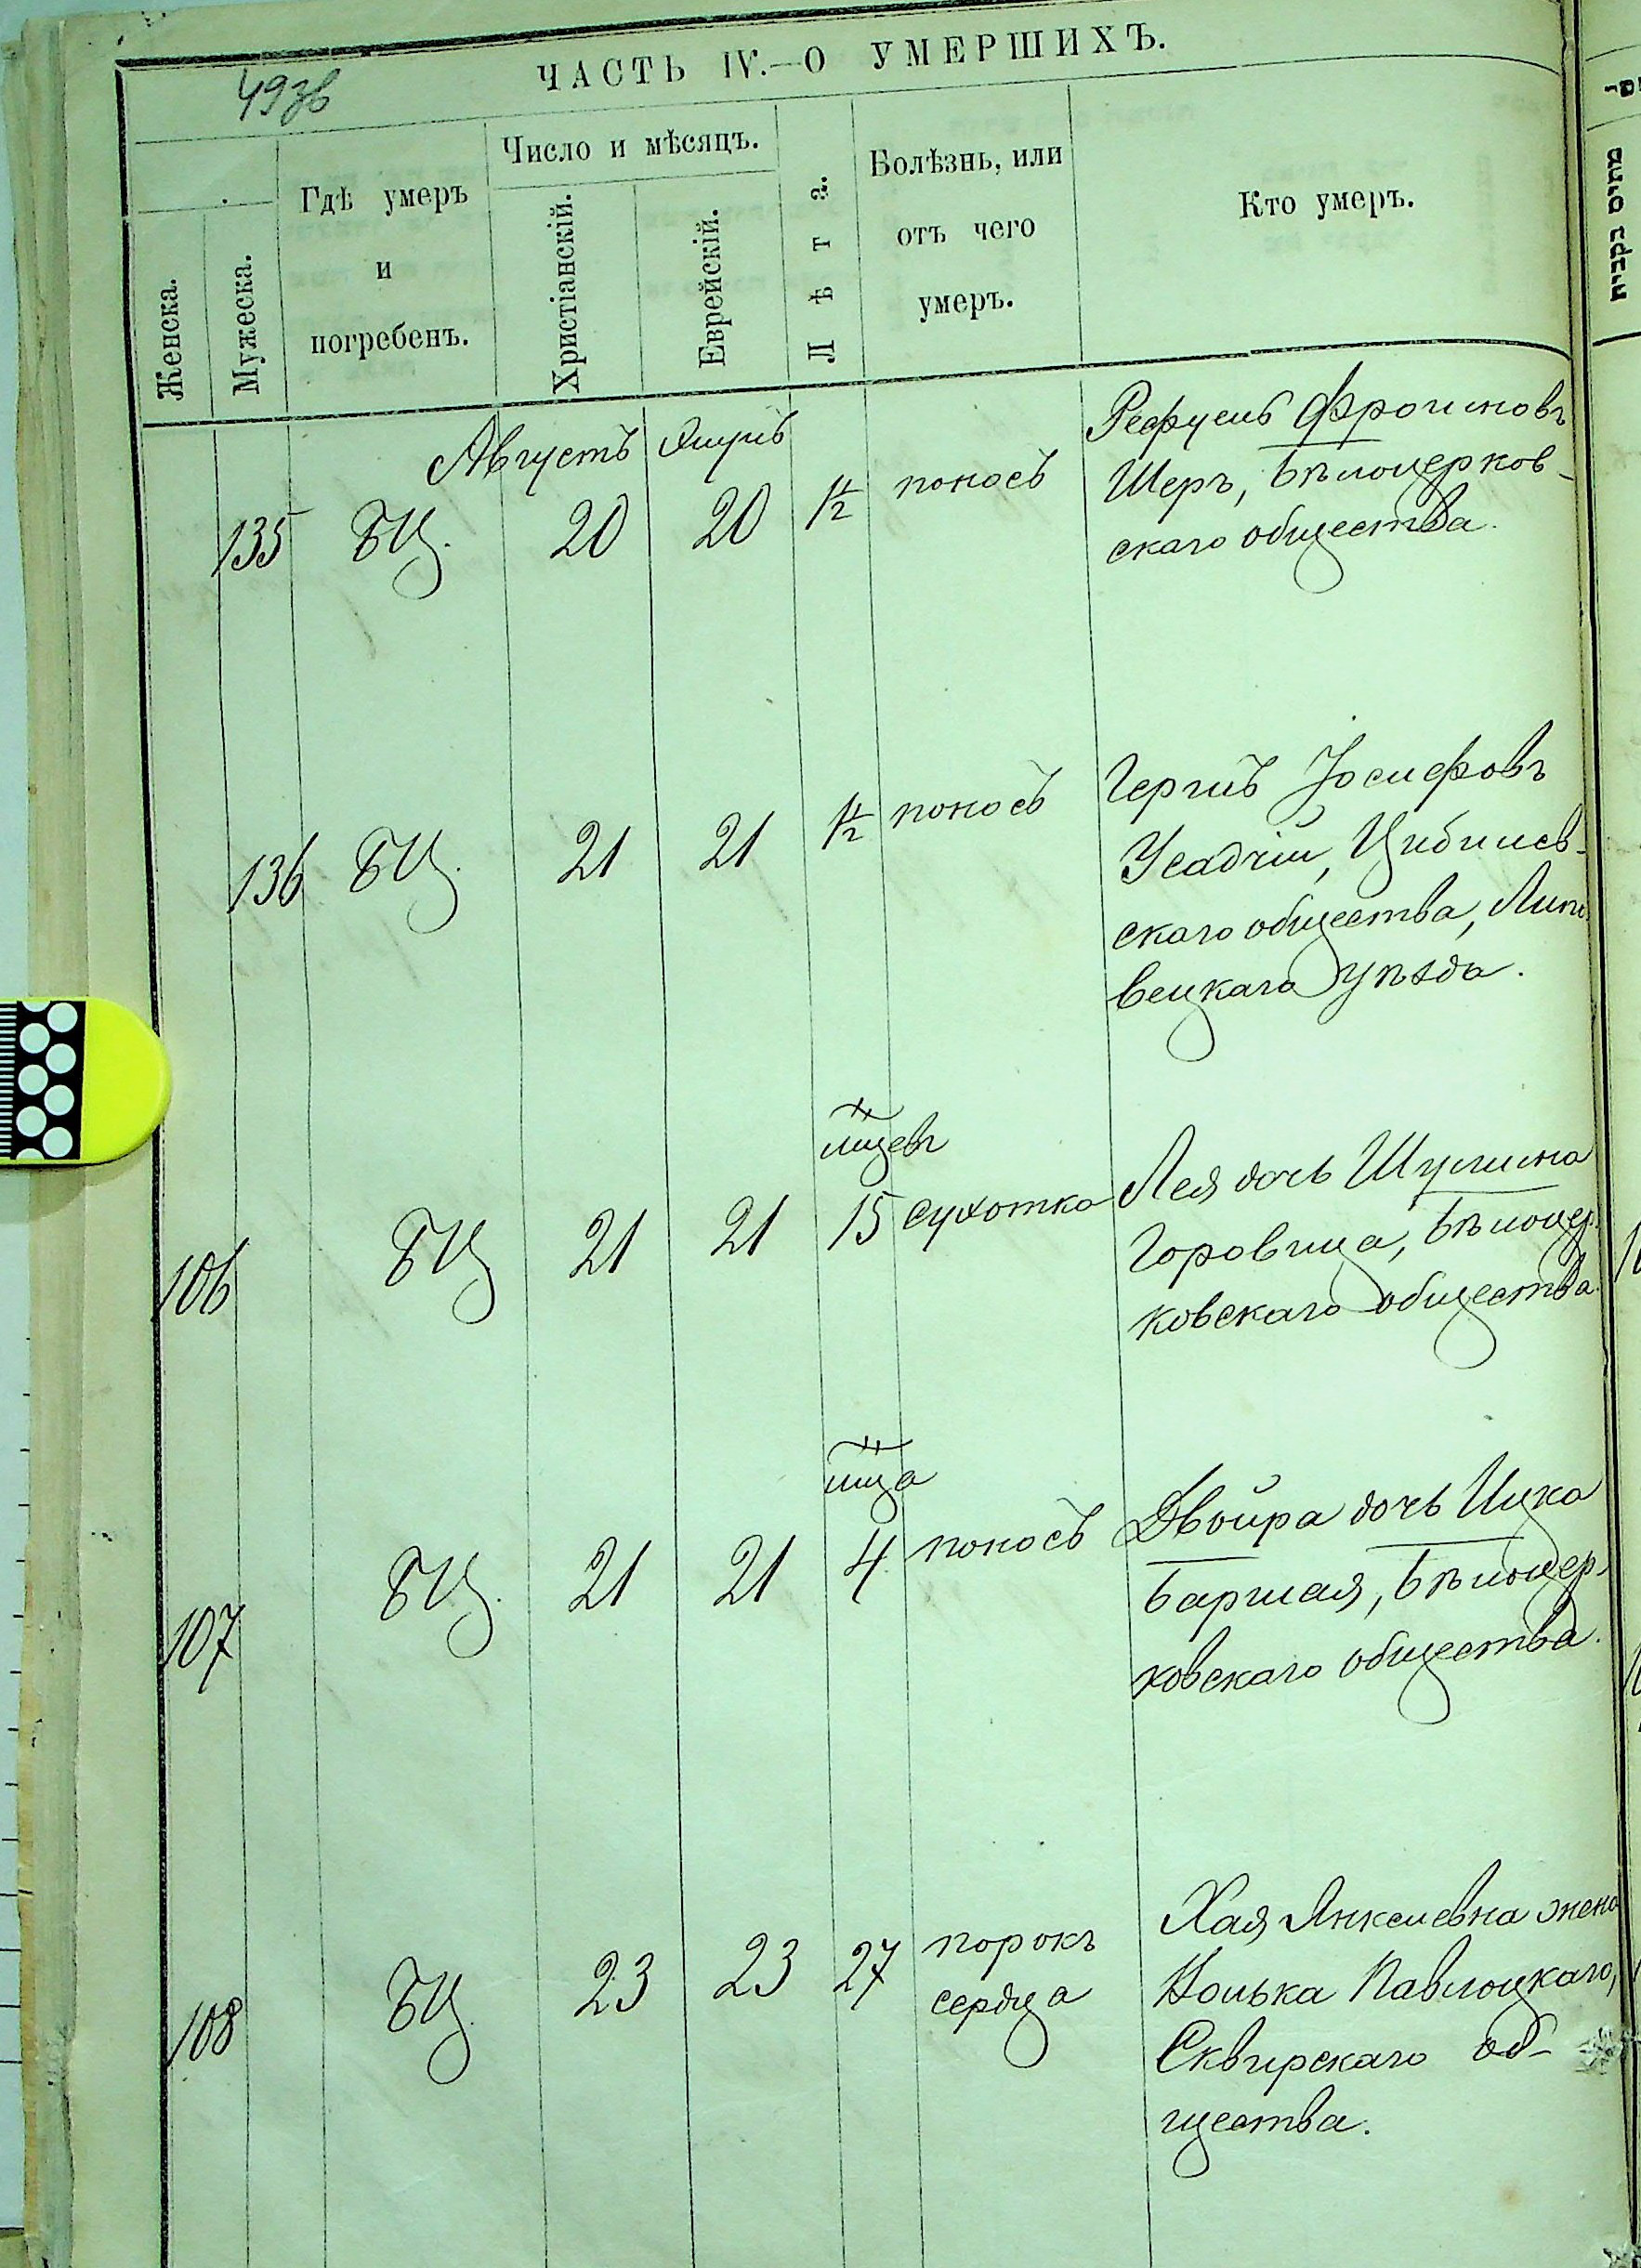 ЧАСТЬ IV.—О УМЕРШИХЪ.
493б
Женска.
Мужеска.
Гдѣ умеръ
и
погребенъ.
Число и мѣсяцъ.
Христіанскій.
Еврейскій.
Лѣта.
Болѣзнь, или
отъ чего
умеръ.
Кто умеръ.
Августъ
135 БЦ. 20 20 1/2 поносъ
Рефуель Фроимовъ
Шеръ, Бѣлоцерков-
скаго общества.
136 БЦ. 21 21 1/2 поносъ
Гершъ Іосифовъ
Усадчій,
скаго общества, Липо
вецкаго уѣзда.
мцевъ
106 БЦ 21 21 15 сухотка
Лея дочь Шулима
Горовица, Бѣлоцер
ковскаго общества.
мца
107 БЦ. 21 21 4 поносъ
Двойра дочь Ицка
Бѣлоцер-
ковскаго общества.
108 БЦ. 23 23 27 порокъ
сердца
Хая Янкелевна жена
Павлоцкаго,
Сквирскаго об-
щества.